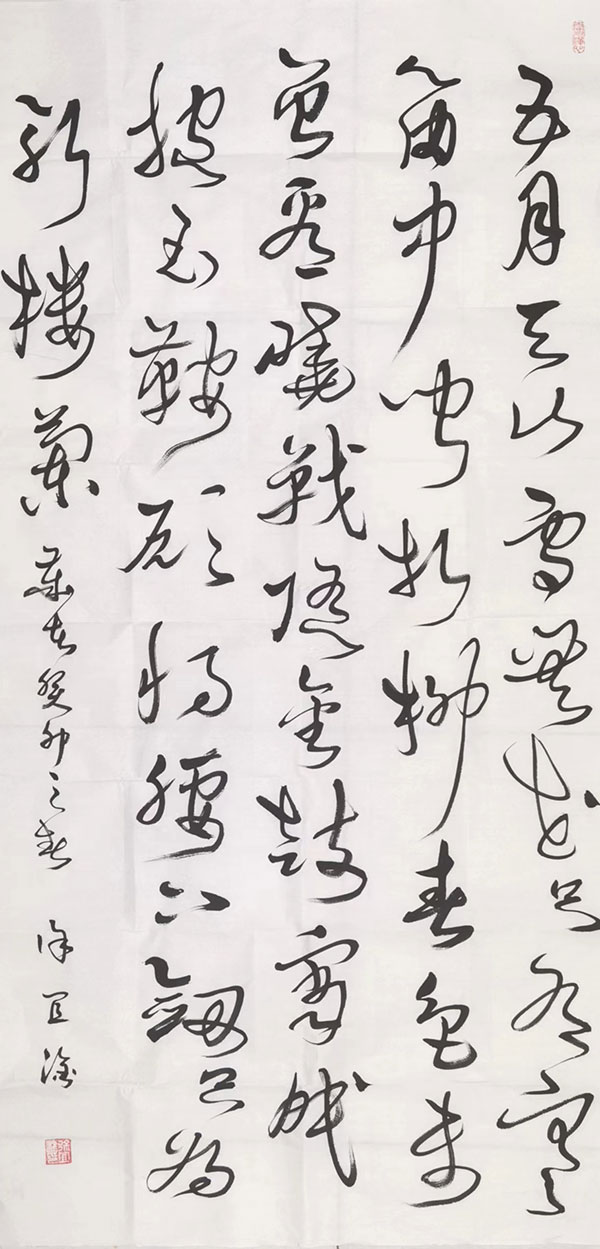 五月天山雪無花只有寒
笛中聞折柳春色未
曾看曉戰隨金鼓宵眠
抱玉鞍願將腰下劍只為
斬樓蘭 歲在癸卯之春 徐宜